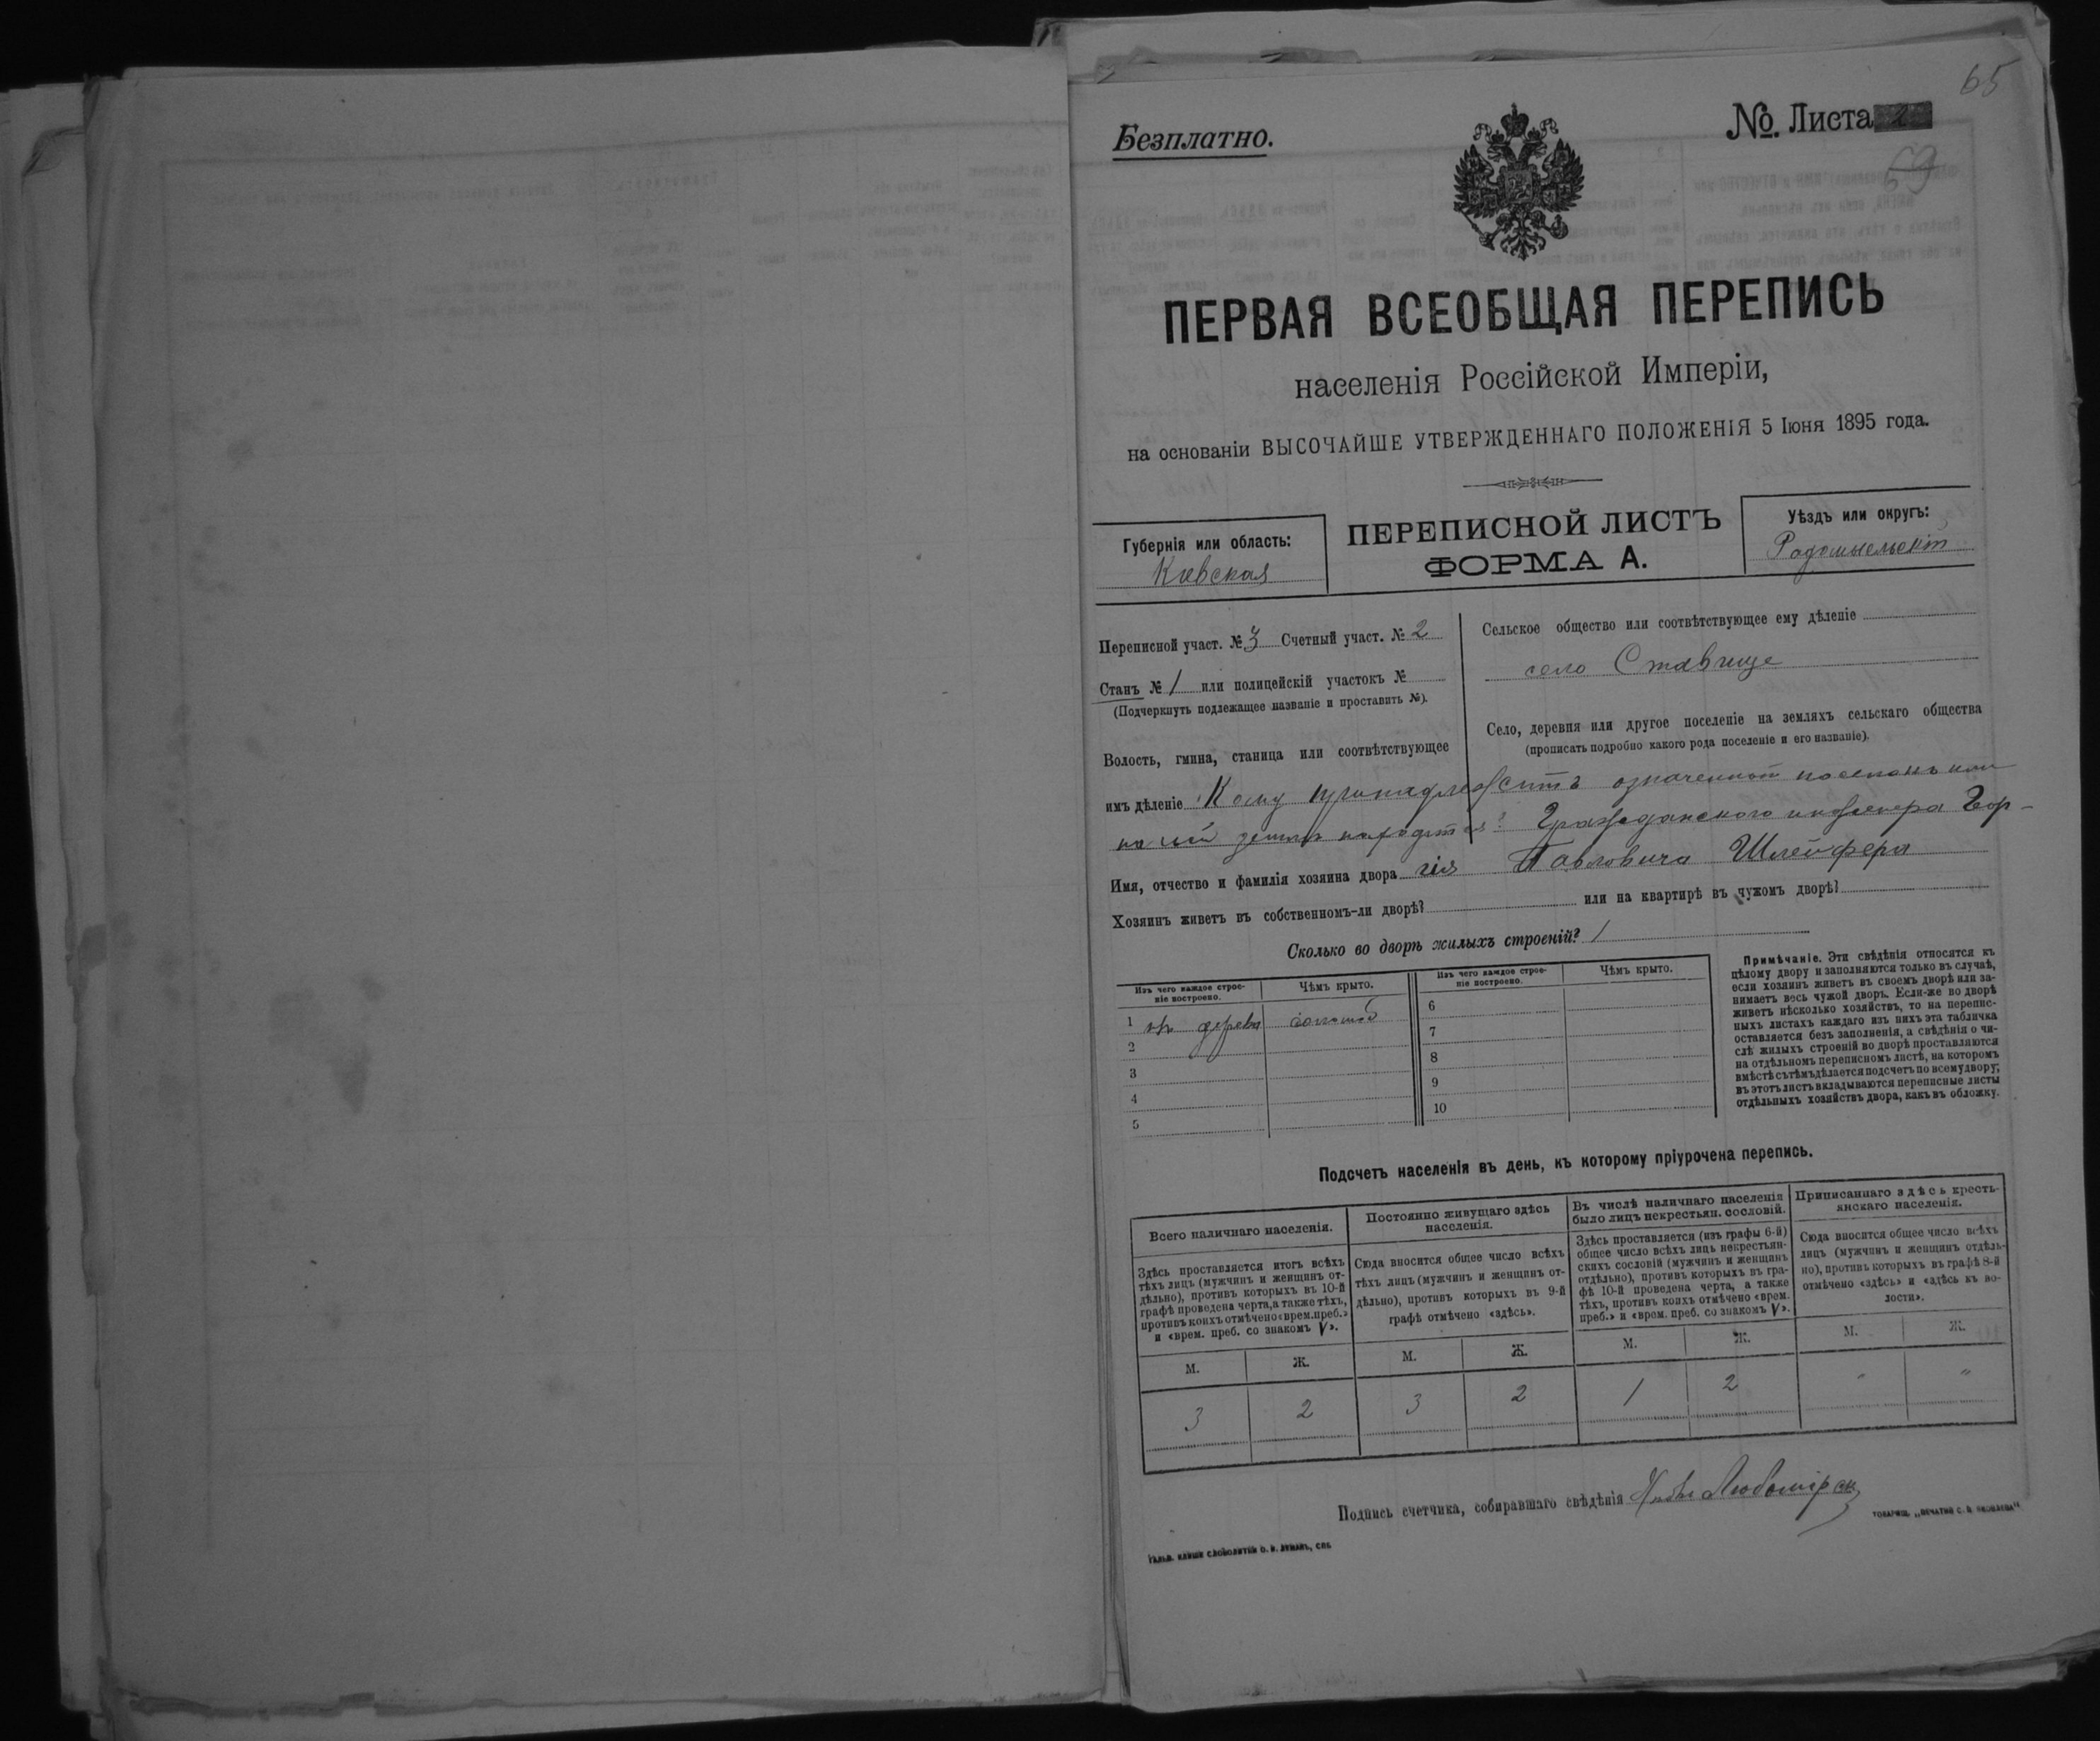 65
Безплатно.
№. Листа 2
59
ПЕРВАЯ ВСЕОБЩАЯ ПЕРЕПИСЬ
населенія Россійской Имперіи,
на основаніи ВЫСОЧАЙШЕ УТВЕРЖДЕННАГО ПОЛОЖЕНІЯ 5 Іюня 1895 года.
Губернія или область:
Кіевская
ПЕРЕПИСНОЙ ЛИСТЪ
ФОРМА А.
Уѣздъ или округъ:
Радомысльскій
Переписной участ. № 3 Счетный участ. № 2
Станъ № 1 или полицейскій участокъ №
(Подчеркнуть подлежащее названіе и проставить №).
Волость, гмина, станица или соотвѣтствующее
Сельское общество или соотвѣтствующее ему дѣленіе
село Ставище
Село, деревня или другое поселеніе на земляхъ сельскаго общества
(прописать подробно какого рода поселеніе и его названіе).
имъ дѣленіе Кому принадлежитъ означенный поселокъ или
на чьей землѣ находится? Гражданского инженера Геор-
Имя, отчество и фамилія хозяина двора гія Павловича Шлейфера
Хозяинъ живетъ въ собственномъ-ли дворѣ? или на квартирѣ въ чужомъ дворѣ?
Сколько во дворѣ жилыхъ строеній? 1
Изъ чего каждое строе-
ніе построено.
Чѣмъ крыто.
Изъ чего каждое строе-
ніе построено.
Чѣмъ крыто.
1 изъ дерева соломой
2
3
4
5
6
7
8
9
10
Примѣчаніе. Эти свѣдѣнія относятся къ
цѣлому двору и заполняются только въ случаѣ,
если хозяинъ живетъ въ своемъ дворѣ или за-
нимаетъ весь чужой дворъ. Если-же во дворѣ
живетъ нѣсколько хозяйствъ, то на перепис-
ныхъ листахъ каждаго изъ нихъ эта табличка
оставляется безъ заполненія, а свѣдѣнія о чи-
слѣ жилыхъ строеній во дворѣ проставляются
на отдѣльномъ переписномъ листѣ, на которомъ
вмѣстѣ съ тѣмъ дѣлается подсчетъ по всему двору;
въ этотъ листъ вкладываются переписные листы
отдѣльныхъ хозяйствъ двора, какъ въ обложку.
Подсчетъ населенія въ день, къ которому пріурочена перепись.
Всего наличнаго населенія.
Здѣсь проставляется итогъ всѣхъ
тѣхъ лицъ (мужчинъ и женщинъ от-
дѣльно), противъ которыхъ въ 10-й
графѣ проведена черта, а также тѣхъ,
противъ коихъ отмѣчено «врем. преб.»
и «врем. преб. со знакомъ V».
Постоянно живущаго здѣсь
населенія.
Сюда вносится общее число всѣхъ
тѣхъ лицъ (мужчинъ и женщинъ от-
дѣльно), противъ которыхъ въ 9-й
графѣ отмѣчено «здѣсь».
Въ числѣ наличнаго населенія
было лицъ некрестьян. сословій.
Здѣсь проставляется (изъ графы 6-й)
общее число всѣхъ лицъ некрестьян-
скихъ сословій (мужчинъ и женщинъ
отдѣльно), противъ которыхъ въ гра-
фѣ 10-й проведена черта, а также
тѣхъ, противъ коихъ отмѣчено «врем.
преб.» и «врем. преб. со знакомъ V».
Приписаннаго здѣсь кресть-
янскаго населенія.
Сюда вносится общее число всѣхъ
лицъ (мужчинъ и женщинъ отдѣль-
но), противъ которыхъ въ графѣ 8-й
отмѣчено «здѣсь» и «здѣсь къ во-
лости».
М. Ж. М. Ж. М. Ж. М. Ж.
3 2 3 2 1 2 " "
Подпись счетчика, собиравшаго свѣдѣнія Любомірск
ТОВАРИЩ. „ПЕЧАТНЯ С. П. ЯКОВЛЕВА"
ГАЛЬВ. КЛИШЕ СЛОВОЛИТНИ О. И. ЛЕМАНЪ, СПБ.